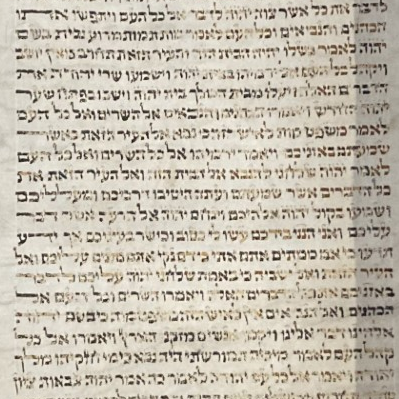 לדבר את כל אשר צוה יהוה לדבר אל כל העם ויתפשו אתו
הכהנים והנביאים וכל העם לאמר מות תמות מדוע נבית בשם
יהוה לאמר כשלו יהיה הבית הזה והעיר הזאת תחרב מאין יושב
ויקהל כל העם אל ירמיהו בבית יהוה וישמעו שרי יהודה את
הדברים האלה ויעלו מבית המלך בית יהוה וישבו בפתח שער
יהוה החדש ויאמרו הכהנים והנבאים אל השרים ואל כל העם
לאמר משפט מות לאיש הזה כי נבא אל העיר הזאת כאשר
שמעתם באזניכם ויאמר ירמיהו אל כל השרים ואל כל העם
לאמר יהוה שלחני להנבא אל הבית הזה ואל העיר הזאת את
כל הדברים אשר שמעתם ועתה היטיבו דרכיכם ומעלליכם
ושמעו בקול יהוה אלהיכם וינחם יהוה אל הרעה אשר דבר
עליכם ואני הנני בידכם עשו לי כטוב וכישר בעיניכם אך ידע
תדעו כי אם ממיתים אתם אתי כי דם נקי אתם נתנים עליכם ואל
העיר הזאת ואל ישביה כי באמת שלחני יהוה עליכם לדבר
באזניכם את כל הדברים האלה ויאמרו השרים וכל העם אל
הכהנים ואל הנביאים אין לאיש הזה משפט מות כי בשם יהוה
אלהינו דבר אלינו ויקמו אנשים מזקני הארץ ויאמרו אל כל
קהל העם לאמר מיכיה המורשתי היה נבא בימי חזקיהו מלך
יהודה ויאמר אל כל עם יהודה לאמר כה אמר יהוה צבאות ציון